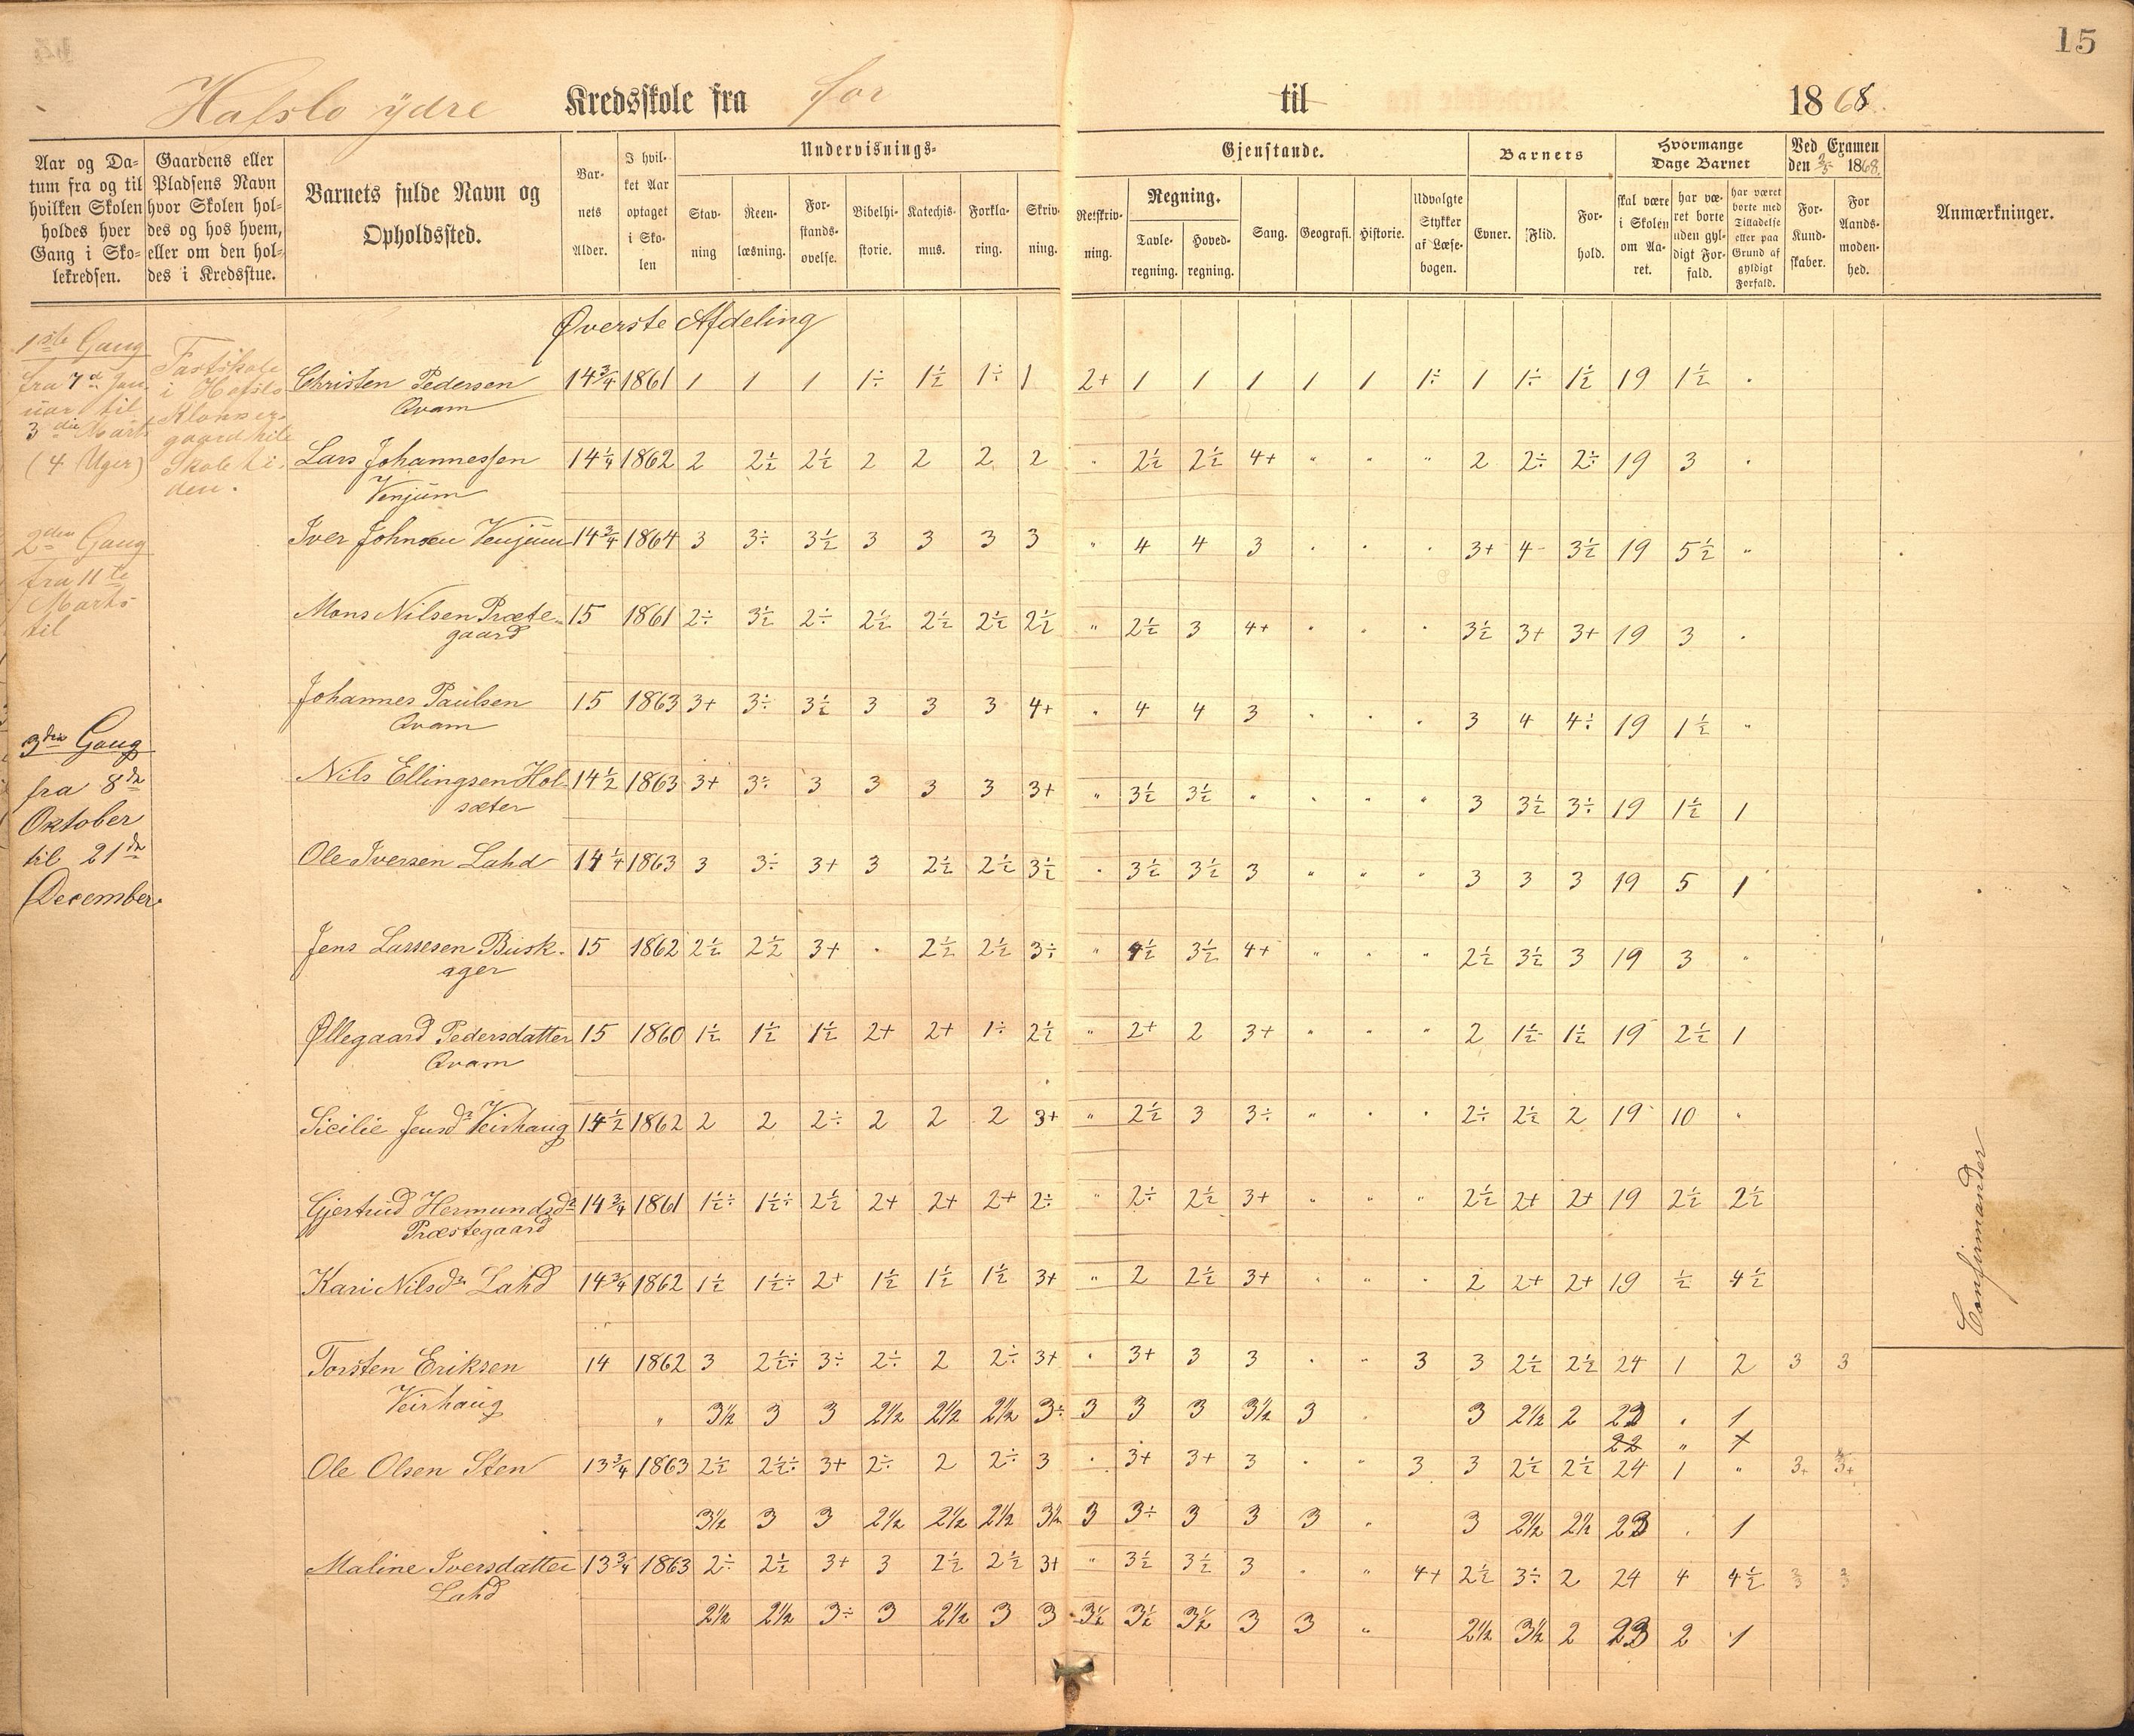 15
Hafslo ydre Kredsskole fra for til 1868.
Aar og Da-
tum fra og til
hvilken Skolen
holdes hver
Gang i Sko-
lekredsen.
Gaardens eller
Pladsens Navn
hvor Skolen hol-
des og hos hvem,
eller om den hol-
des i Kredsstue.
Barnets fulde Navn og
Opholdssted.
Bar-
nets
Alder.
I hvil-
ket Aar
optaget
i Sko-
len
Undervisnings-
Stav-
ning
Reen-
læsning.
For-
stands-
øvelse.
Bibelhi-
storie.
Katechis-
mus.
Forkla-
ring.
Skriv-
ning.
Gjenstande.
Retskriv-
ning.
Regning.
Tavle-
regning.
Hoved-
regning.
Sang.
Geografi.
Historie.
Udvalgte
Stykker
af Læse-
bogen.
Barnets
Evner.
Flid.
For-
hold.
Hvormange
Dage Barnet
skal være
i Skolen
om Aa-
ret.
har væ-
ret borte
uden gyl-
digt For-
fald.
har været
borte med
Tilladelse
eller paa
Grund af
gyldigt
Forfald.
Ved Examen
den 2/5 1868.
For
Kund-
skaber.
For
Aands-
moden-
hed.
Anmærkninger.
Øverste Afdeling
1ste Gang
fra 7de Jan
uar til
3die Marts
(4 Uger)
Fastskole
i Hafslo
Klokker-
gaard hele
Skoleti-
den.
2den Gang
fra 11te
Marts
til
3die Gang
fra 8de
Oktober
til 21de
December.
Christen Pedersen 14 3/4 1861 1 1 1 1÷ 1½ 1÷ 1 2+ 1 1 1 1 1 1÷ 1 1÷ 1½ 19 1½ .
Qvam
Lars Johannessen 14 1/4 1862 2 2½ 2½ 2 2 2 2 " 2½ 2½ 4+ " " " 2 2÷ 2÷ 19 3 .
Venjum
Iver Johnsen Venjum 14 3/4 1864 3 3÷ 3½ 3 3 3 3 " 4 4 3 . . . 3+ 4- 3½ 19 5½ "
Mons Nilsen Præste- 15 1861 2÷ 3½ 2÷ 2½ 2½ 2½ 2½ " 2½ 3 4+ . . . 3½ 3+ 3+ 19 3 .
gaard
Johannes Paulsen 15 1863 3+ 3÷ 3½ 3 3 3 4+ " 4 4 3 . . . 3 4 4÷ 19 1½ "
Qvam
Nils Ellingsen Hol- 14½ 1863 3+ 3÷ 3 3 3 3 3+ " 3½ 3½ " . " " 3 3½ 3÷ 19 1½ 1
sæter
Ole Iversen Lahd 14 1/4 1863 3 3÷ 3+ 3 2½ 2½ 3½ . 3½ 3½ 3 " " " 3 3 3 19 5 1
Jens Lassesen Busk- 15 1862 2½ 2½ 3+ . 2½ 2½ 3÷ " 4½ 3½ 4+ " . " 2½ 3½ 3 19 3 "
ager
Øllegaard Pedersdatter 15 1860 1½ 1½ 1½ 2+ 2+ 1÷ 2½ " 2+ 2 3+ " " " 2 1½ 1½ 19 2½ 1
Qvam
Sicilie Jensdr Veirhaug 14½ 1862 2 2 2÷ 2 2 2 3+ " 2½ 3 3÷ " . . 2÷ 2½ 2 19 10 "
Gjertrud Hermundsdr 14 3/4 1861 1½÷ 1½÷ 2½ 2+ 2+ 2+ 2÷ " 2÷ 2½ 3+ " " " 2½ 2+ 2+ 19 2½ 2½
Præstegaard
Kari Nilsdr Lahd 14 3/4 1862 1½ 1½÷ 2+ 1½ 1½ 1½ 3+ " 2 2½ 3+ . " . 2 2+ 2+ 19 ½ 4½
Confirmander
Torsten Eriksen 14 1862 3 2½÷ 3÷ 2÷ 2 2÷ 3+ . 3+ 3 3 . " 3 3 2½ 2½ 24 1 2 3 3
Veirhaug " 3½ 3 3 2½ 2½ 2½ 3÷ 3 3 3 3½ 3 . 3 2½ 2 23 . 1
22 " 1
Ole Olsen Sten 13 3/4 1863 2½ 2½÷ 3+ 2÷ 2 2÷ 3 . 3+ 3+ 3 . " 3 3 2½ 2½ 24 1 " 3+ 3+
3½ 3 3 2½ 2½ 2½ 3½ 3 3÷ 3 3 3 . 3 2½ 2½ 23 . 1
Maline Iversdatter 13 3/4 1863 2÷ 2½ 3+ 3 2½ 2½ 3+ " 3½ 3½ 3 . " 4+ 2½ 3÷ 2 24 4 4½ 3 3
Lahd
2½ 2½ 3÷ 3 2½ 3 3 3½ 3½ 3½ 3 3 " 2½ 3½ 2 23 2 1